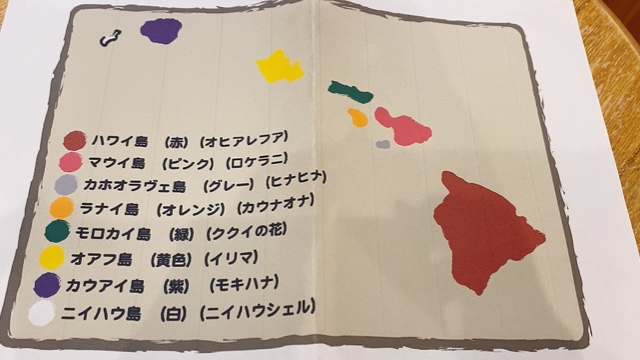 ハワイ島 (赤) (オヒアレフア)
マウイ島 (ピンク) (ロケラニ)
カホオラヴェ島 (グレー) (ヒナヒナ)
ラナイ島 (オレンジ) (カウナオナ)
モロカイ島 (緑) (ククイの花)
オアフ島 (黄色) (イリマ)
カウアイ島 (紫) (モキハナ)
ニイハウ島 (白) (ニイハウシェル)